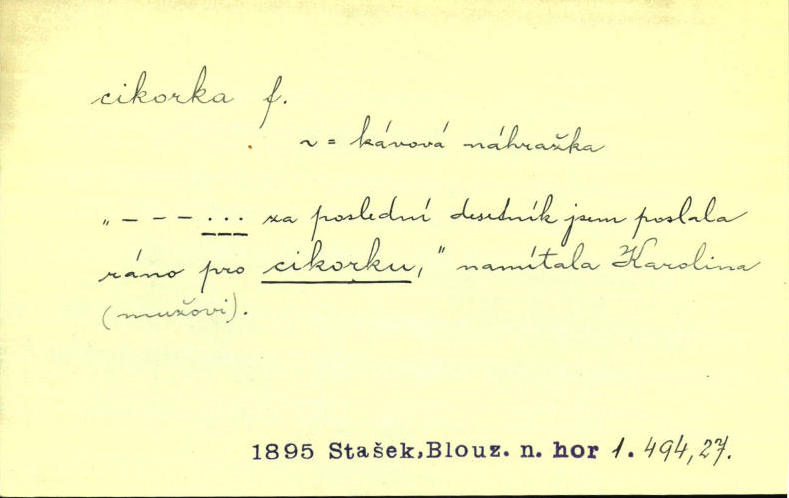 cikorka f.
~ = kávová náhražka
„ – – – ... za poslední desetník jsem poslala
ráno pro cikorku,“ namítala Karolina
(mužovi).
1895 Stašek,Blouz. n. hor 1. 494,27.